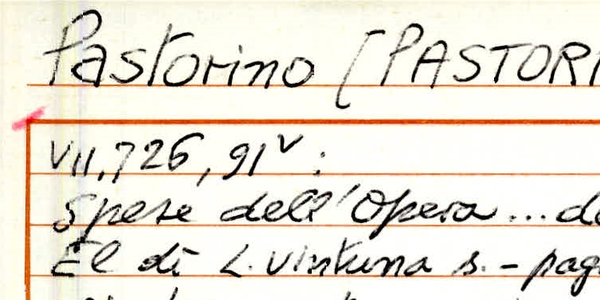 Pastorino [PASTORI
VII, 726, 91v :
Spese dell'Opera ... de
El dì L. vintuna s. - pag